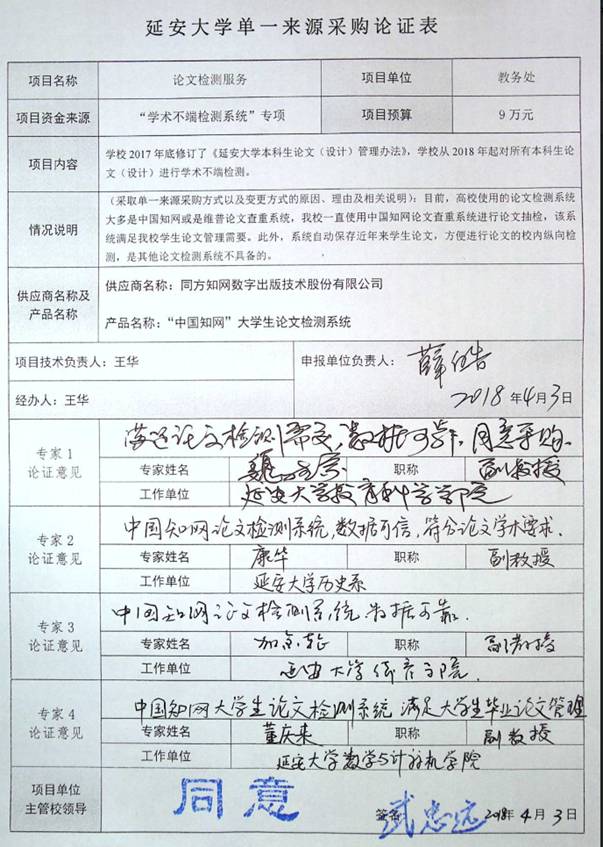 延安大学单一来源采购论证表
项目名称 论文检测服务 项目单位 教务处
项目资金来源 “学术不端检测系统”专项 项目预算 9 万元
项目内容
学校 2017 年底修订了《延安大学本科生论文（设计）管理办法》，学校从 2018 年起对所有本科生论
文（设计）进行学术不端检测。
情况说明
（采取单一来源采购方式以及变更方式的原因、理由及相关说明）：目前，高校使用的论文检测系统
大多是中国知网或是维普论文查重系统，我校一直使用中国知网论文查重系统进行论文抽检，该系
统满足我校学生论文管理需要。此外，系统自动保存近年来学生论文，方便进行论文的校内纵向检
测，是其他论文检测系统不具备的。
供应商名称及
产品名称
供应商名称：同方知网数字出版技术股份有限公司
产品名称：“中国知网”大学生论文检测系统
项目技术负责人：王华 申报单位负责人：
经办人：王华 2018 年 4 月 3 日
专家 1
论证意见
满足论文检测需交，数据可靠，同意采购.
专家姓名 职称 副教授
工作单位 延安大学教育科学学院
专家 2
论证意见
中国知网论文检测系统，数据可信，符合论文学术要求.
专家姓名 康华 职称 副教授
工作单位 延安大学历史系
专家 3
论证意见
中国知网论文检测系统.数据可靠.
专家姓名 职称 副教授
工作单位 延安大学体育学院.
专家 4
论证意见
中国知网大学生论文检测系统 满足大学生毕业论文管理
专家姓名 董庆来 职称 副教授
工作单位 延安大学数学与计算机学院
项目单位
主管校领导
同意
签名 武忠远 2018 年 4 月 3 日